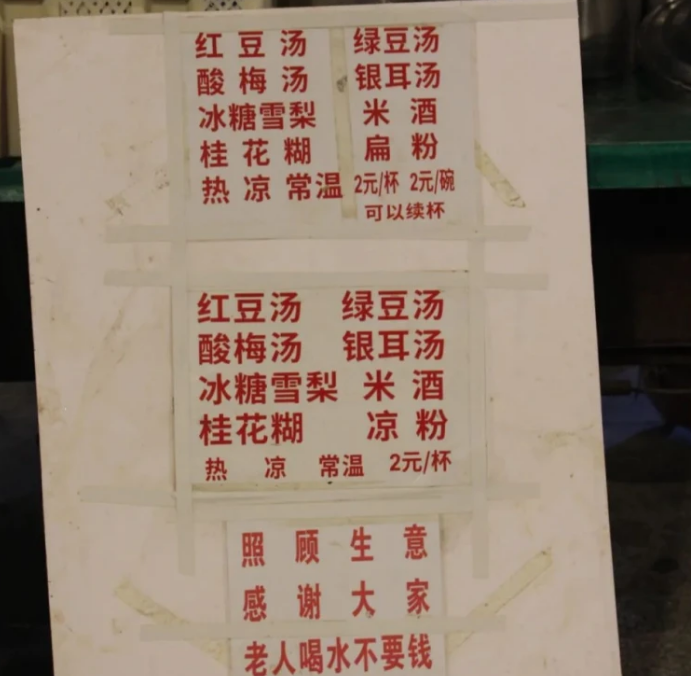 红豆汤 绿豆汤
酸梅汤 银耳汤
冰糖雪梨 米酒
桂花糊 扁粉
热 凉 常温 2元/杯 2元/碗
可以续杯
红豆汤 绿豆汤
酸梅汤 银耳汤
冰糖雪梨 米酒
桂花糊 凉粉
热 凉 常温 2元/杯
照顾生意
感谢大家
老人喝水不要钱